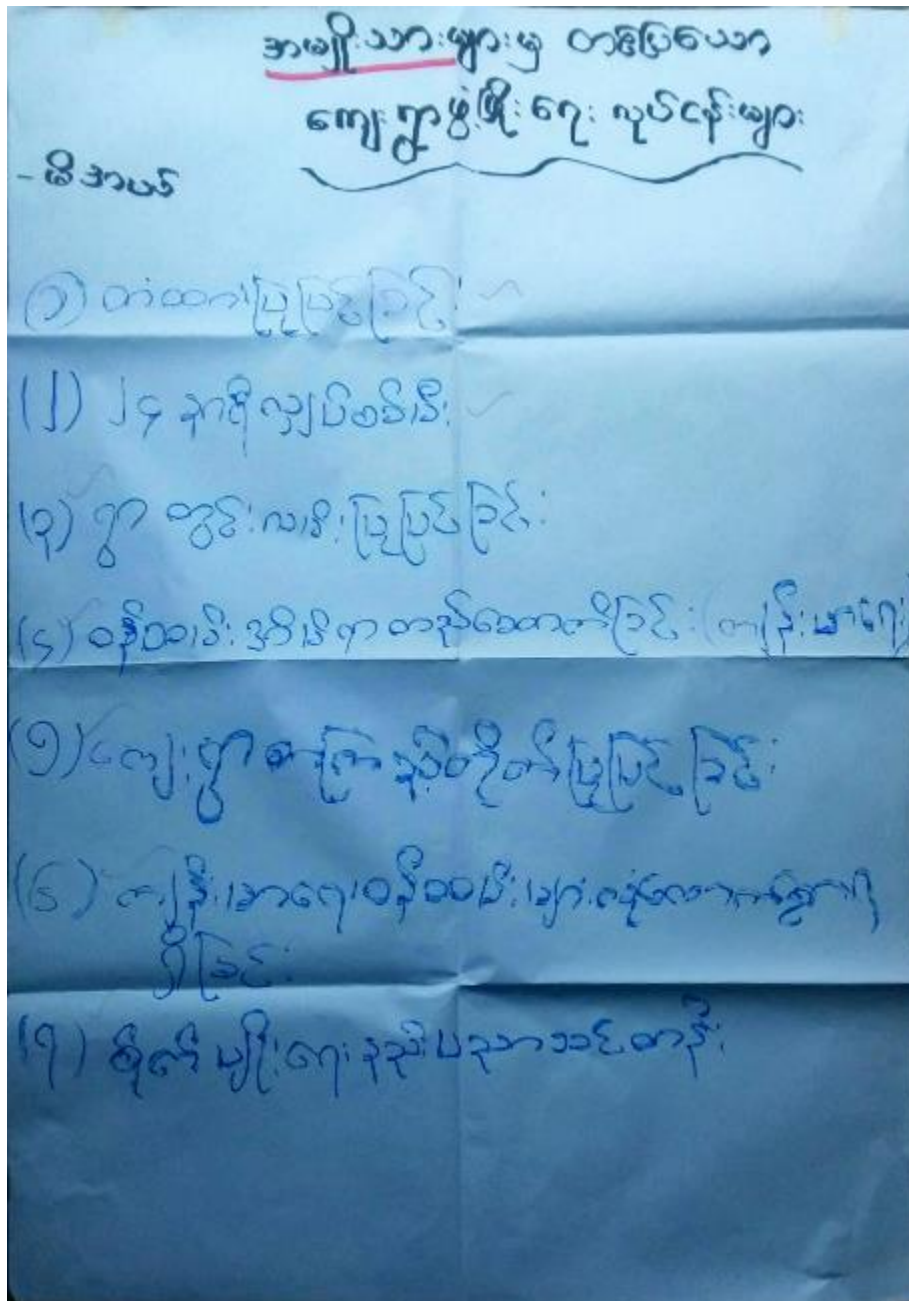 အမျိုးသားများမှ တင်ပြသော
ကျေးရွာဖွံ့ဖြိုးရေး လုပ်ငန်းများ
- မိအယ်
(၁) တံတားပြုပြင်ခြင်း
(၂) ၂၄ နာရီလျှပ်စစ်မီး
(၃) ရွာတွင်းလမ်းပြုပြင်ခြင်း
(၄) ဝန်ထမ်းအိမ်ရာ တည်ဆောက်ခြင်း (ကျန်းမာရေး)
(၅) ကျေးရွာစာကြည့်တိုက်ပြုပြင်ခြင်း
(၆) ကျန်းမာရေးဝန်ထမ်းများ
ရှိခြင်း
(၇) စိုက်ပျိုးရေးနည်းပညာသင်တန်း